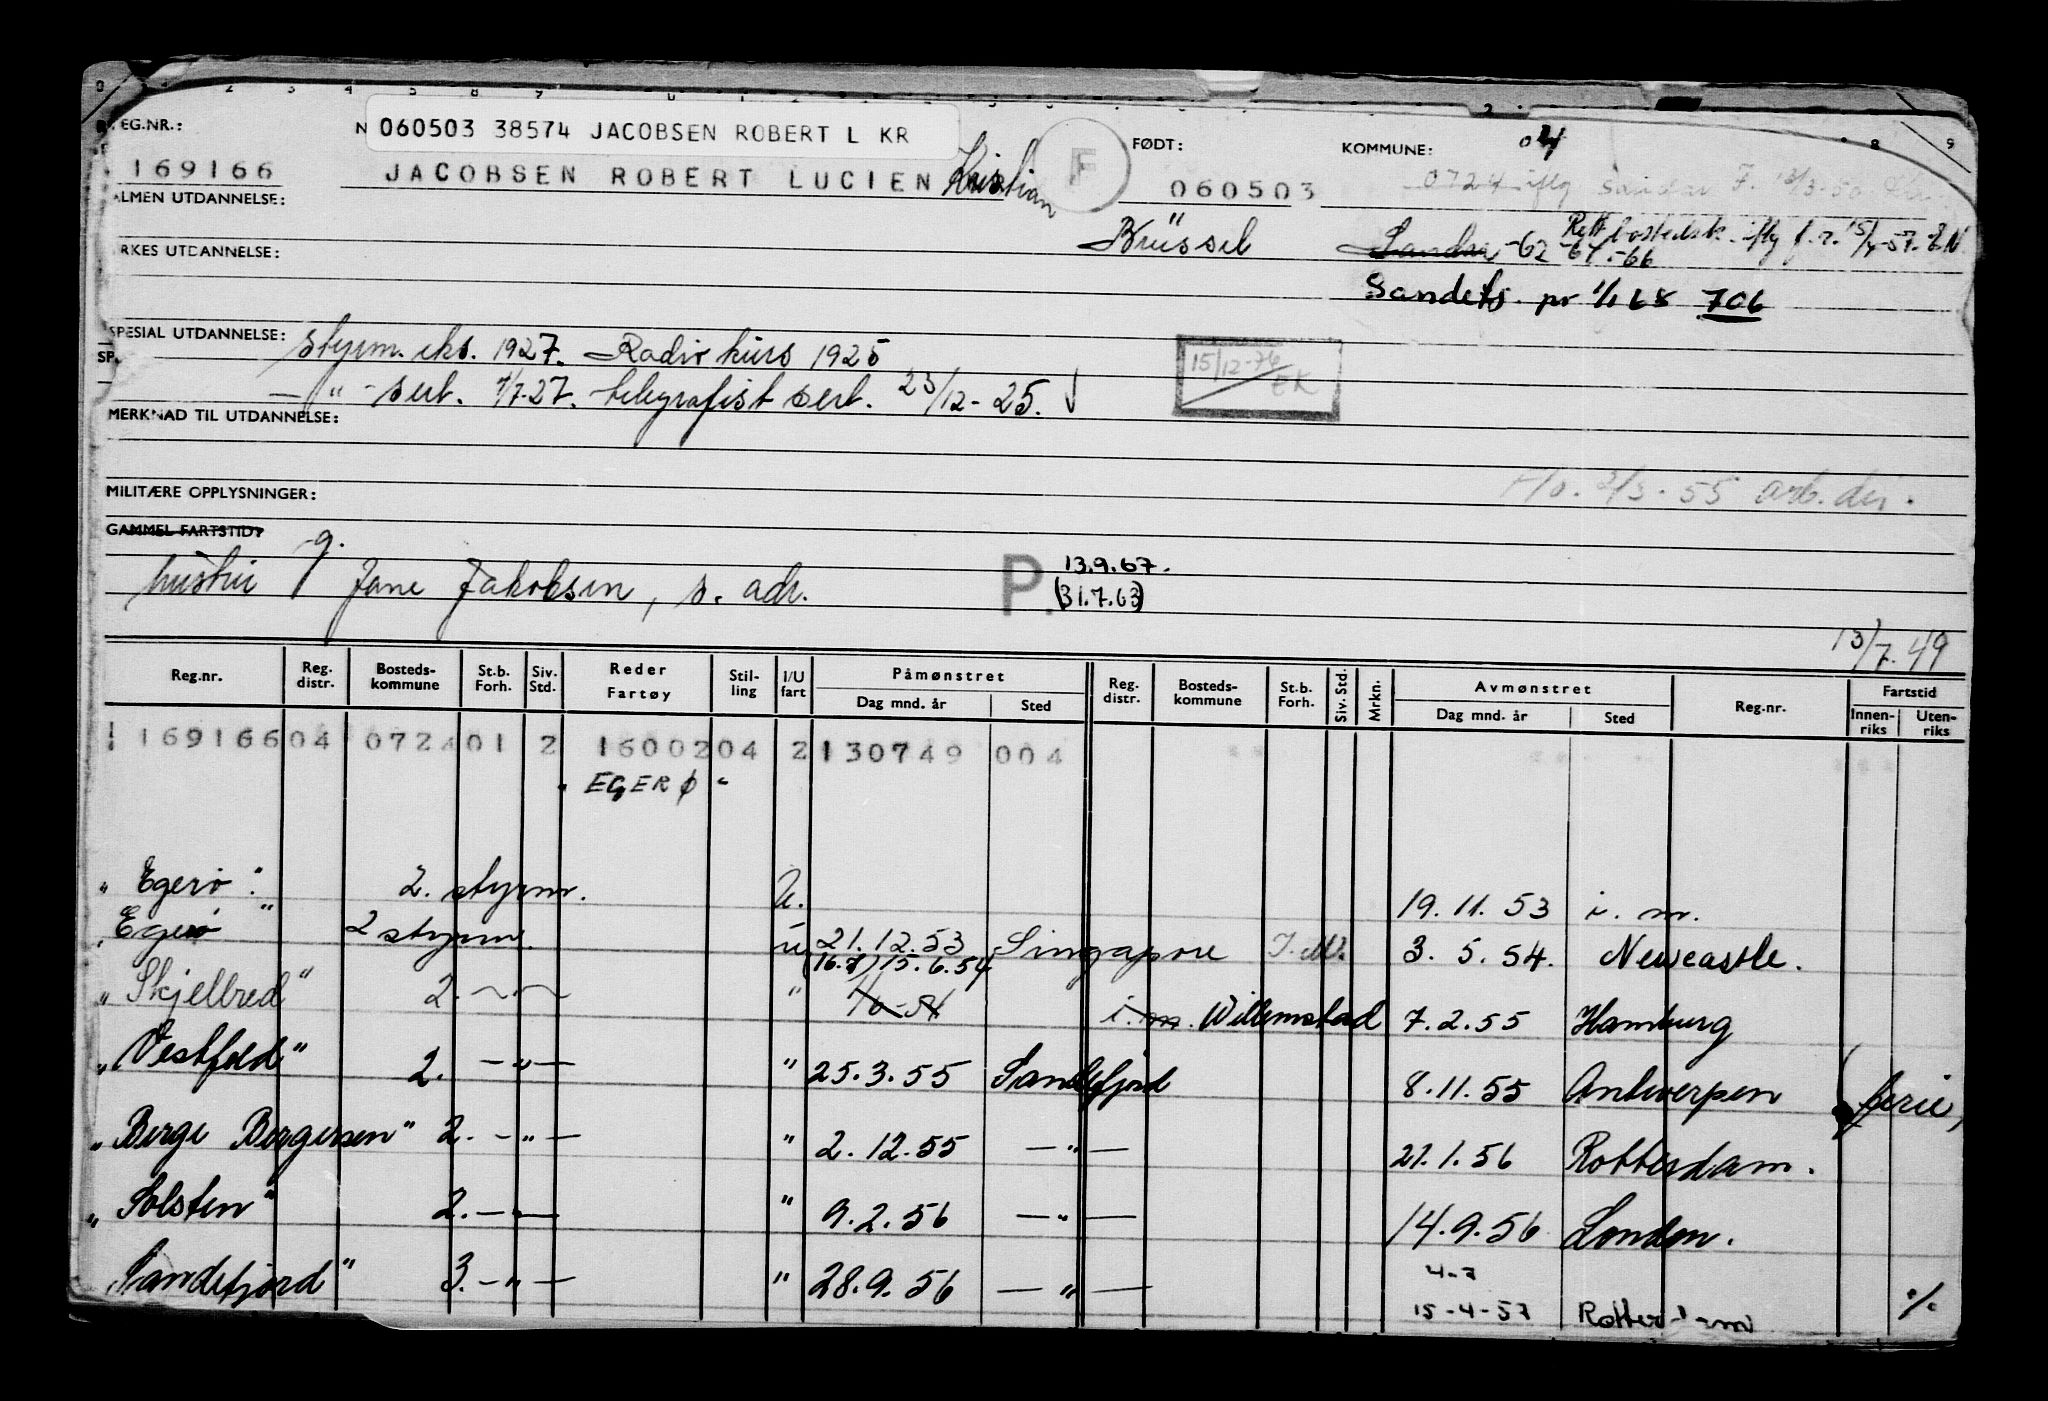 REG.NR.: N 060503 38574 JACOBSEN ROBERT L KR FØDT: KOMMUNE: 04
169166 JACOBSEN ROBERT LUCIEN Kristian F 060503 0724 iflg Sandar
ALMEN UTDANNELSE:
Brüssel Sandar -62 -64 -66 Rett bostedsk. iflg f.r. 15/4-57. E.N.
YRKES UTDANNELSE:
Sandefj. pr 1/1 68 706
SPESIAL UTDANNELSE: Styrm. eks. 1927. Radio kurs 1925
— " — sert. 1/7-27. telegrafist sert. 23/12-25. 15/12-76 EK
MERKNAD TIL UTDANNELSE:
2/3-55 arb. dir.
MILITÆRE OPPLYSNINGER:
GAMMEL FARTSTID?
g.
hustru Jane Jakobsen, s. adr. P. 13.9.67. (31.7.63)
13/7.49
Reg.nr. Reg. distr. Bosteds-kommune St.b. Forh. Siv. Std. Reder Fartøy Stil-ling I/U fart Påmønstret Dag mnd. år Sted Reg. distr. Bosteds-kommune St.b. Forh. Siv. Std. Mrkn. Avmønstret Dag mnd. år Sted Reg.nr. Fartstid Innen-riks Uten-riks
169166 04 0724 01 2 16002 04 2 130749 004
" EGERØ "
" Egerø " 2. styrm. U. 19.11.53 i. m.
" Egerø " 2 styrm. u 21.12.53 Singapore I.M. 3.5.54. Newcastle.
(16.7) 15.6.54
" Skjelbred " 2. —"— " i.m. Willemstad 7.2.55 Hamburg
" Vestfold " 2. —"— " 25.3.55 Sandefjord 8.11.55 Antwerpen (ferie)
" Berge Bergesen " 2. —"— " 2.12.55 —"— 21.1.56 Rotterdam.
" Solsten " 2. —"— " 9.2.56 —"— 14.9.56 London.
Sandefjord " 3. —"— " 28.9.56 —"— 4-7
15-4-57 Rotterdam ./.